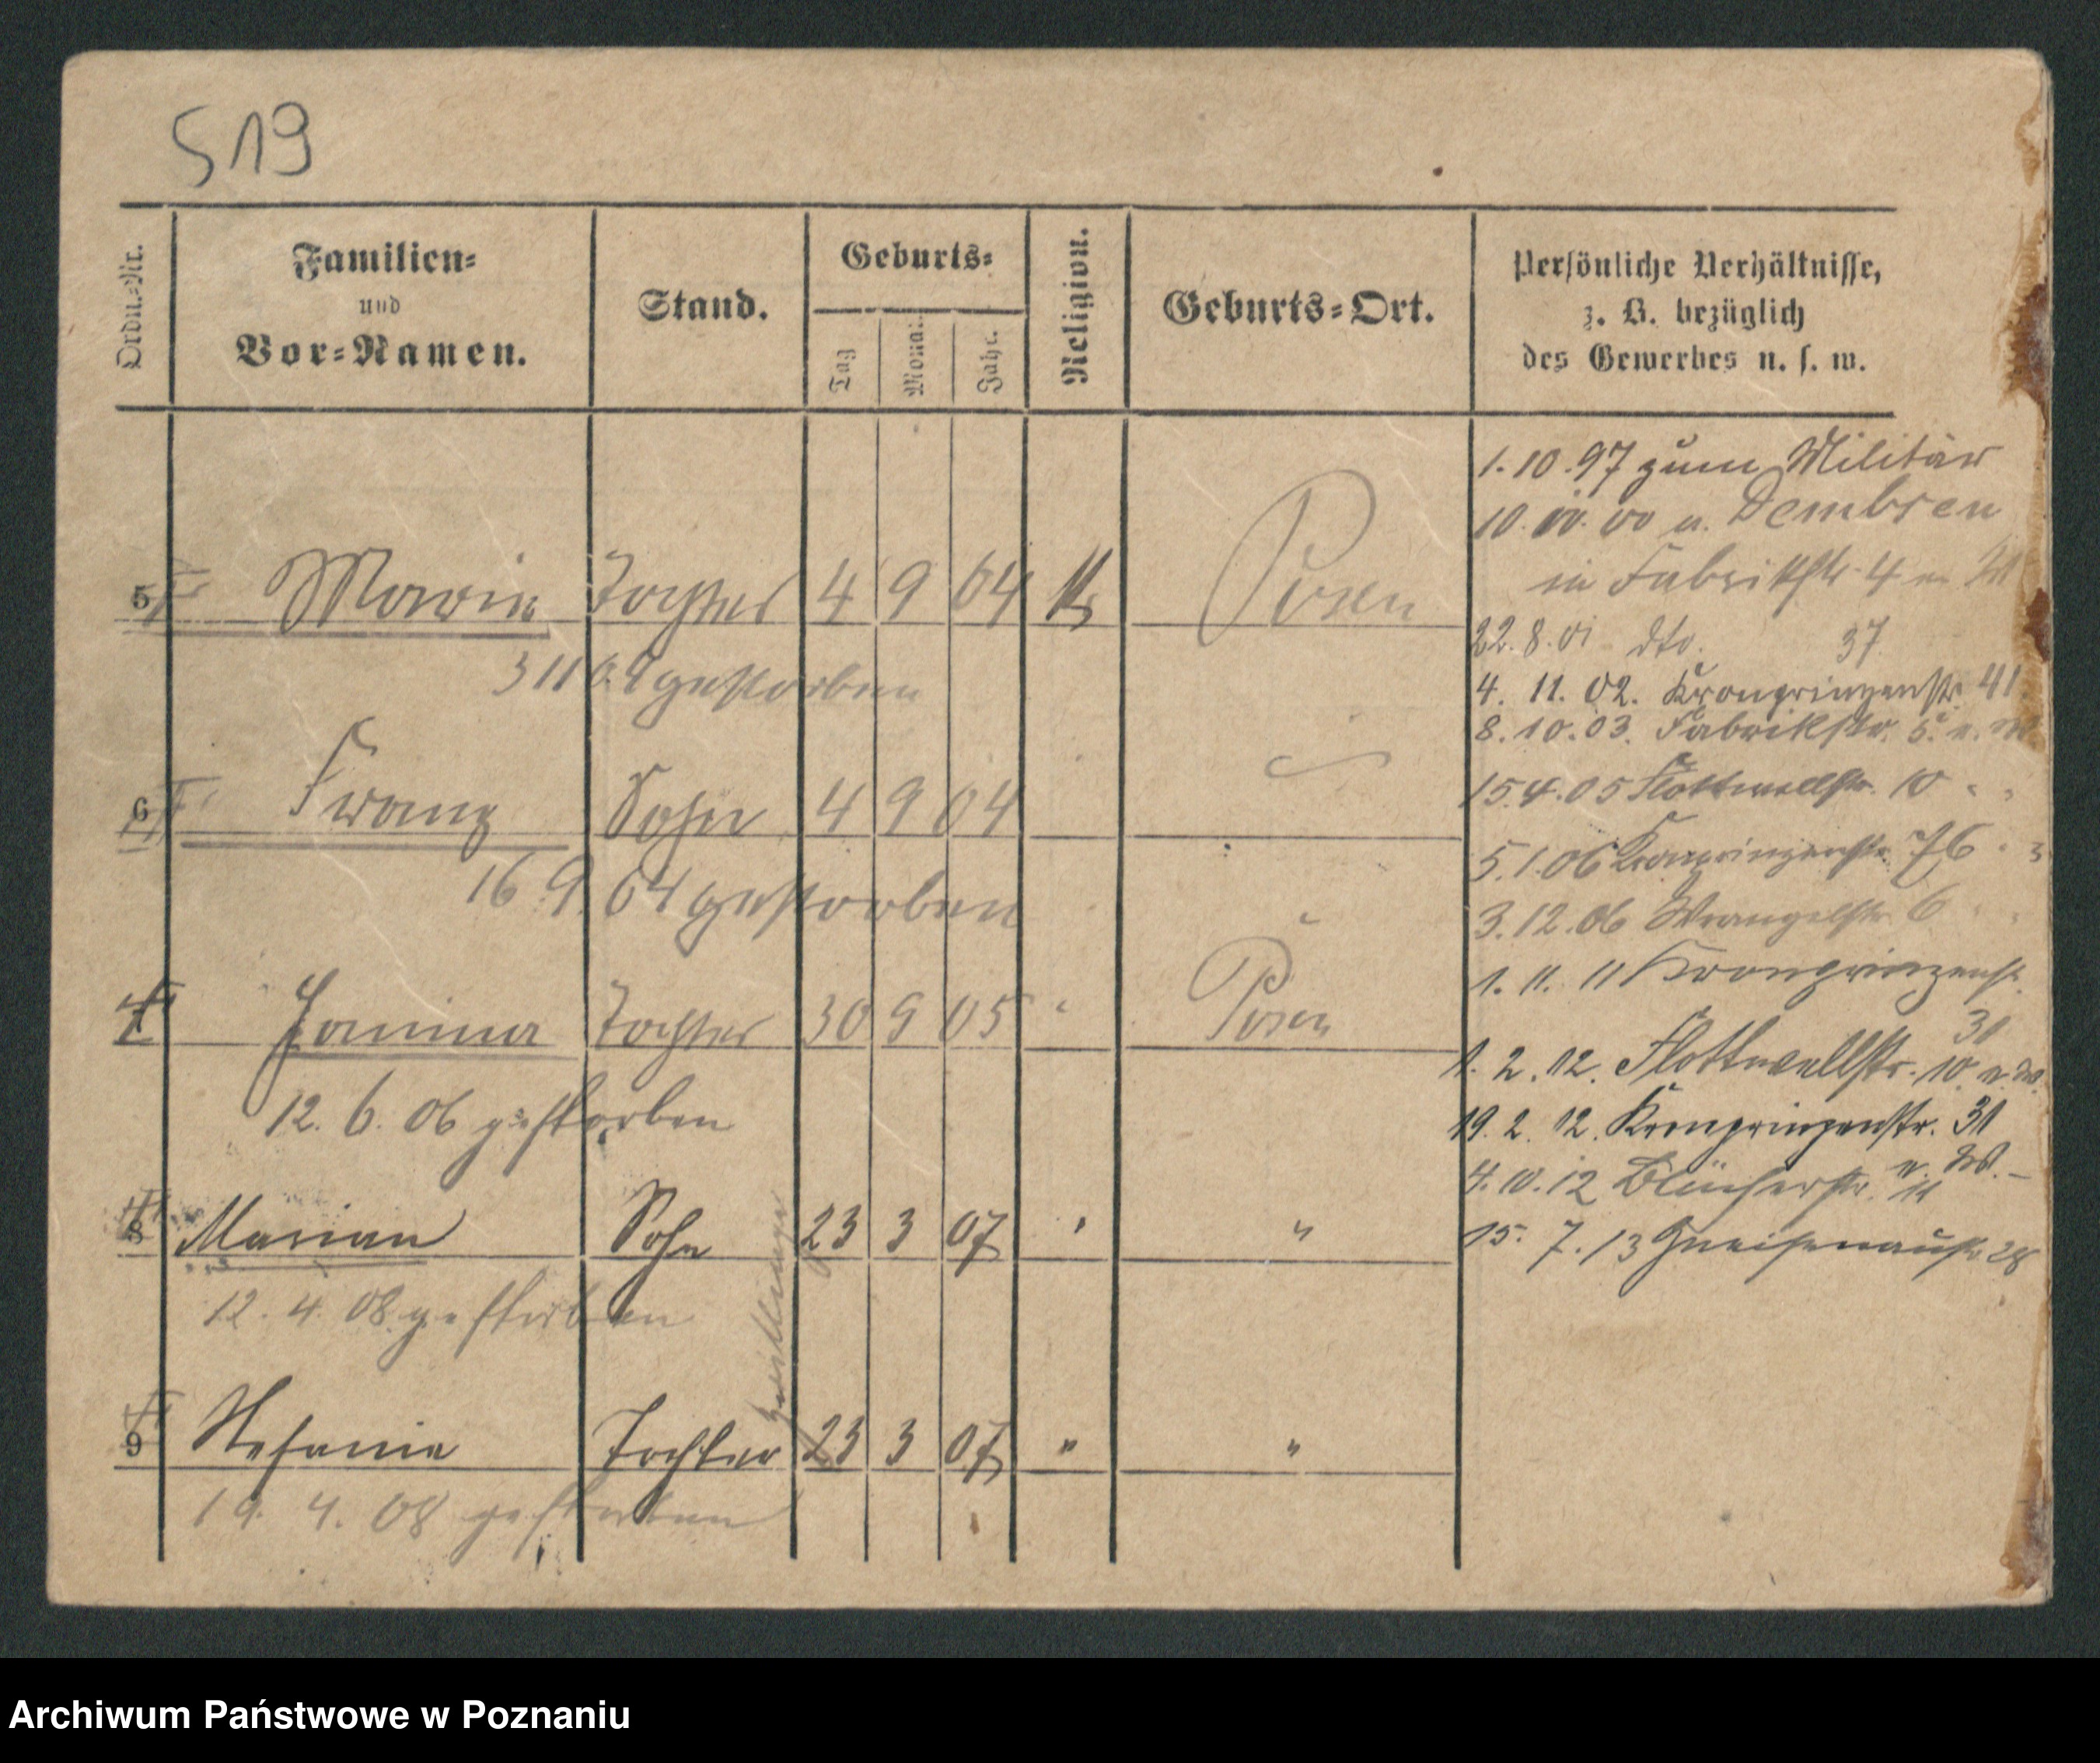 519
Ordn.-Nr.
Familien-
und
Vor-Namen.
Stand.
Geburts-
Tag
Monat
Jahr.
Religion.
Geburts-Ort.
Persönliche Verhältnisse,
z. B. bezüglich
des Gewerbes u. s. w.
5 Maria Tochter 4 9 04 K Posen
3 11 04 gestorben
6 Franz Sohn 4 9 04
16. 9. 04 gestorben
7 Janina Tochter 30 9 05 " Posen
12. 6. 06 gestorben
8 Marian Sohn 23 3 07 " "
12. 4. 08 gestorben
9 Stefania Tochter 23 3 07 " "
19. 4. 08 gestorben
Zwillinge
1. 10. 97 zum Militär
10. 10. 00 v. Dembsen
in Fabrikstr. 4
22. 8. 01 dto. 37
4. 11. 02. Kronprinzenstr. 41
8. 10. 03. Fabrikstr. 5
15. 4. 05 Flottwellstr. 10 " "
5. 1. 06 Kronprinzenstr. 76
3. 12. 06 Wrangelstr. 6
1. 11. 11 Kronprinzenstr.
31
1. 2. 12. Flottwellstr. 10
19. 2. 12. Kronprinzenstr. 31
4. 10. 12 Blücherstr. 11
15. 7. 13 Gneisenaustr. 28
Archiwum Państwowe w Poznaniu